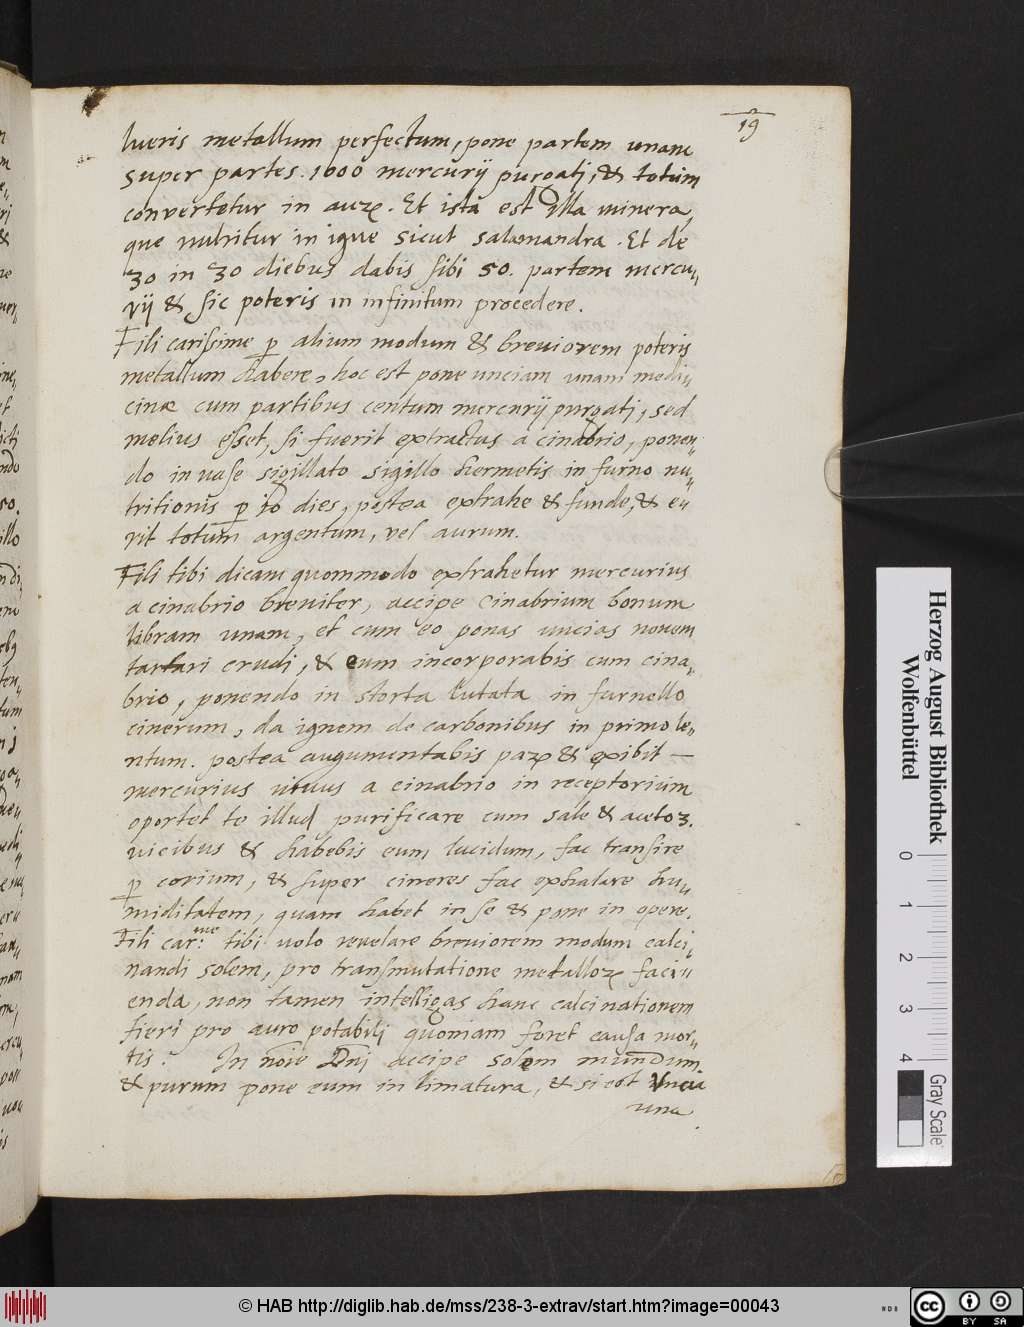 19
lueris metallum perfectum, pone partem unam
super partes. 1000 mercurij purgati, & totum
convertetur in auꝝ. Et ista est illa minera,
que nutritur in igne sicut salamandra. Et de
30 in 30 diebus dabis sibi 50. partem mercu„
rij & sic poteris in infinitum procedere.
Fili carissime ꝑ alium modum & breviorem poteris
metallum habere, hoc est pone unciam unam medi„
cinæ cum partibus centum mercurij purgati, sed
melius esset, si fuerit extractus a cinabrio, ponen„
do in vase sigillato sigillo hermetis in furno nu„
tritionis ꝑ 10 dies, postea extrahe & funde, & e„
rit totum argentum, vel aurum.
Fili tibi dicam quommodo extrahetur mercurius
a cinabrio breviter, accipe Cinabrium bonum
libram unam, et cum eo ponas uncias novem
tartari crudi, & eum incorporabis cum cina„
brio, ponendo in storta lutata in furnello
cinerum, da ignem de carbonibus in primo le„
ntum. postea augumentabis paꝝ & exibit —
mercurius vivus a cinabrio in receptorium
oportet te illud purificare cum sale & aceto 3.
vicibus & habebis eum lucidum, fac transire
ꝑ corium, & super cineres fac exhalare hu„
miditatem, quam habet in se & pone in opere.
Fili car:me tibi volo revelare breviorem modum calci„
nandi solem, pro transmutatione metalloꝝ faci„
enda, non tamen intelligas hanc calcinationem
fieri pro auro potabili quoniam foret causa mor„
tis: In noīe Dnī accipe solem mundum,
& purum pone eum in limatura, & si est Uncia
una
Herzog August Bibliothek
Wolfenbüttel
0 1 2 3 4
Gray Scale
© HAB http://diglib.hab.de/mss/238-3-extrav/start.htm?image=00043
cc BY SA